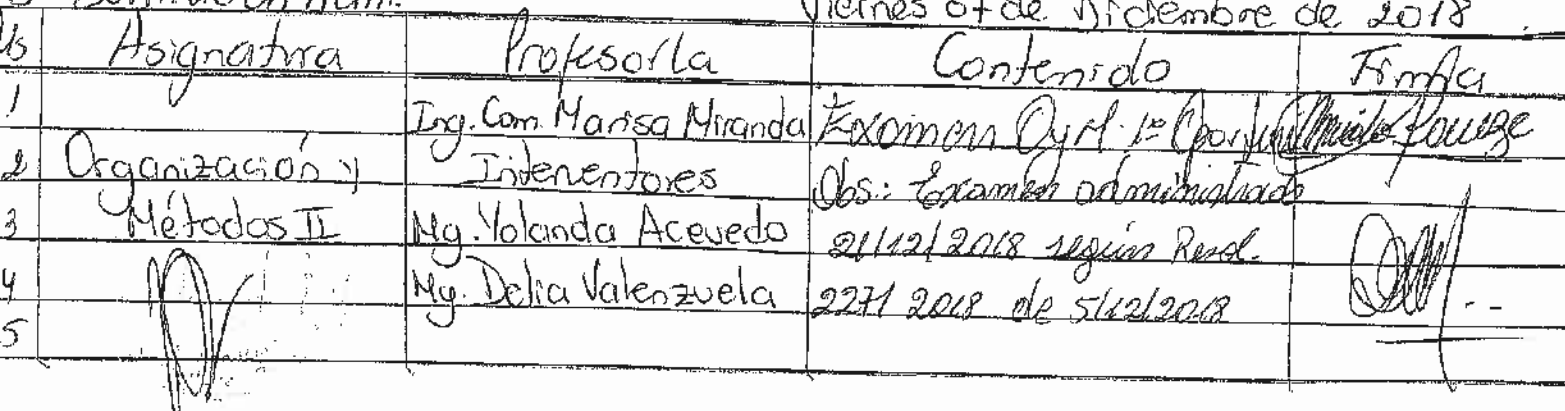 Viernes 07 de Diciembre de 2018
Hs Asignatura Profesor/a Contenido Firma
1 Ing. Com. Marisa Miranda Examen OyM. 1º
2 Organización y Interventores Obs.: Examen administrado
3 Métodos II Mg. Yolanda Acevedo 21/12/2018 según Resol.
4 Mg. Delia Valenzuela 227/2018 de 5/12/2018
5